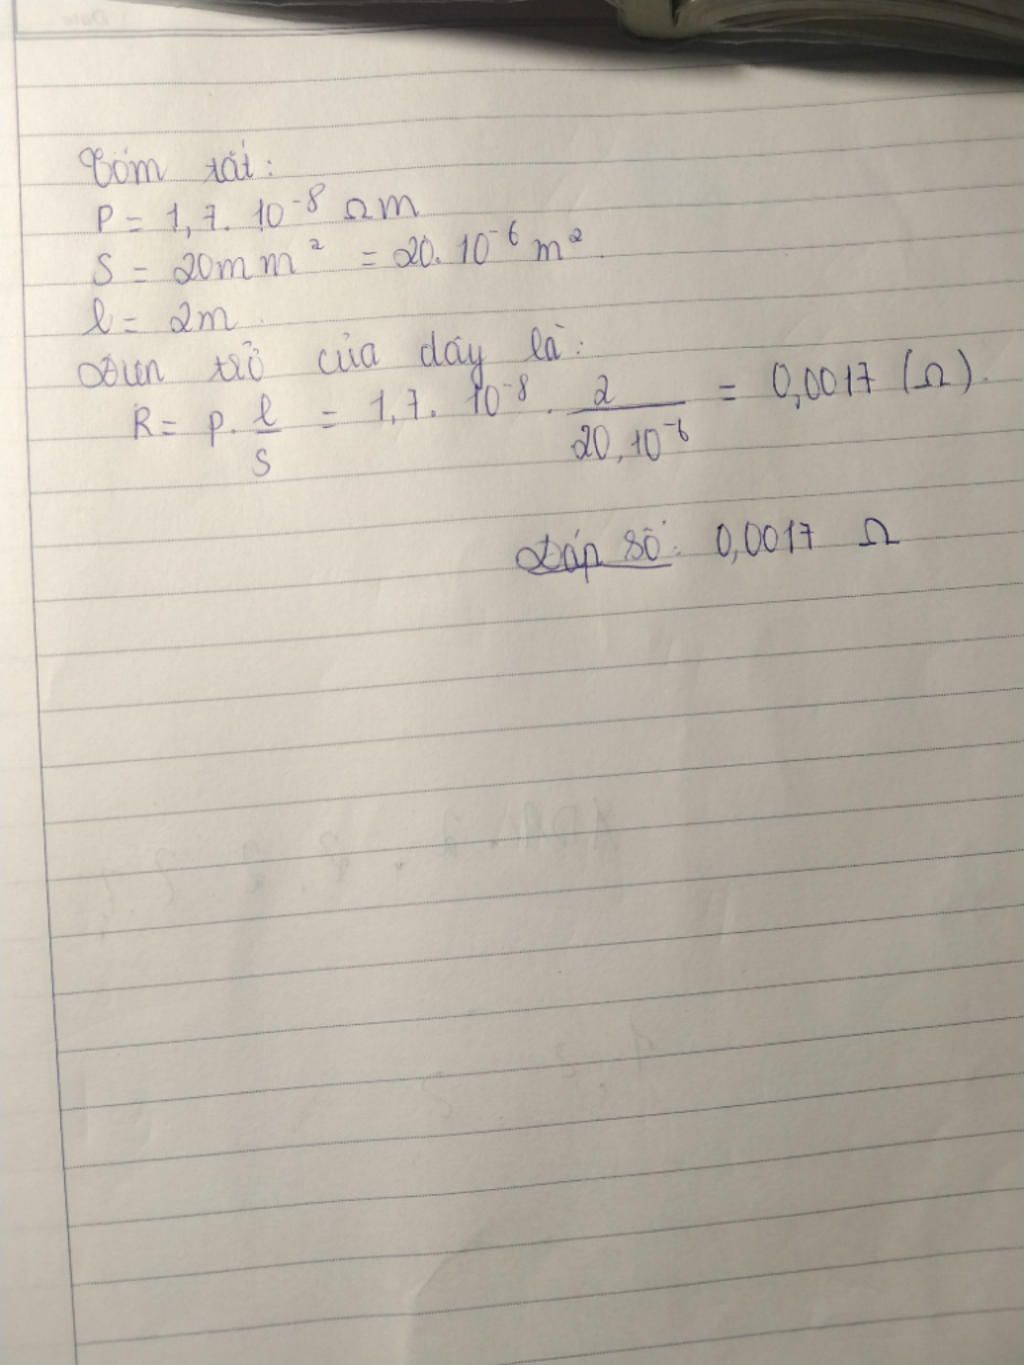 Tóm tắt:
P = 1,7. 10⁻⁸ Ωm
S = 20mm² = 20. 10⁻⁶ m².
l = 2m.
Điện trở của dây là:
R = p. l/S = 1,7. 10⁻⁸ . 2/20.10⁻⁶ = 0,0017 (Ω).
Đáp số: 0,0017 Ω